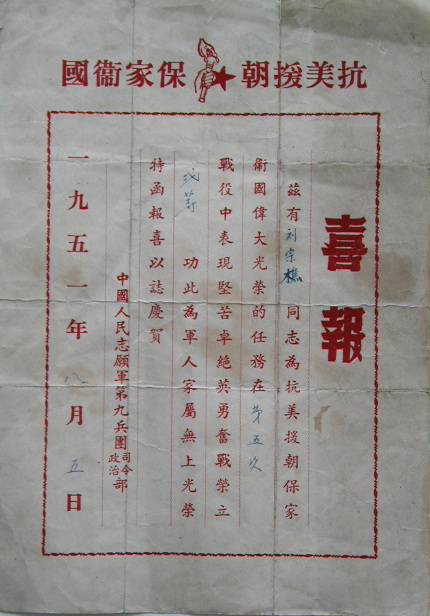 抗美援朝 保家衞國
喜報
茲有刘宗樵同志為抗美援朝保家
衛國偉大光榮的任務在第五次
戰役中表現堅苦卓絕英勇奮戰榮立
等功此為軍人家屬無上光榮
特函報喜以誌慶賀
中國人民志願軍第九兵團司令政治部
一九五一年八月五日